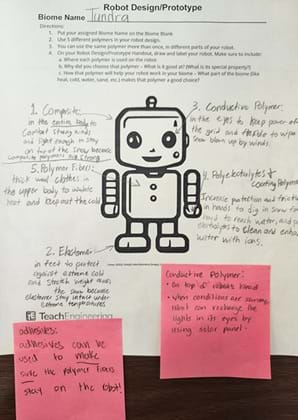 Robot Design/Prototype
Biome Name Tundra
Directions:
1. Put your assigned Biome Name on the Biome Blank
2. Use 5 different polymers in your robot design.
3. You can use the same polymer more than once, in different parts of your robot.
4. On your Robot Design/Prototype Handout, draw and label your robot. Make sure to include:
a. Where each polymer is used on the robot.
b. Why did you choose that polymer - What is it good at? (What is its special property?)
c. How that polymer will help your robot work in your biome - What part of the biome (like heat, cold, water, sand, etc.) makes that polymer a good choice?
1. Composite:
in the entire body to
combat strong winds
and light enough to stay
on top of the snow because
composite polymers are strong
3. Conductive Polymer:
in the eyes to keep power off
the grid and flexible to wipe
snow blown up by winds.
5. Polymer Fibers:
thick wool clothes in
the upper body to withhold
heat and keep out the cold
4. Polyelectrolytes &
Coating Polymer
Increase protection and friction
in hands to dig in snow for
to reach water, and
electrolytes to clean and
water with ions.
2. Elastomer
in feet to protect
against extreme cold
and stretch weight across
the snow because
elastomer stay intact under
extreme temperatures
TeachEngineering
adhesives:
adhesives can be
used to make
sure the polymer fibers
stay on the robot!
Conductive Polymer:
• on top of robots hand
• when conditions are sunny
robot can recharge the
lights in its eyes by
using solar panel.